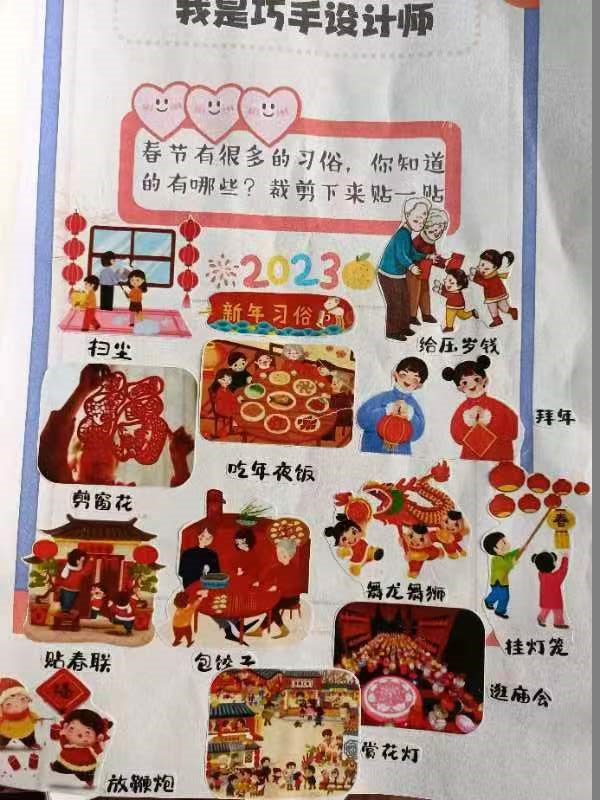 我是巧手设计师
春节有很多的习俗，你知道
的有哪些？裁剪下来贴一贴
2023
新年习俗
扫尘
给压岁钱
拜年
吃年夜饭
剪窗花
春
舞龙舞狮
挂灯笼
贴春联
包饺子
逛庙会
赏花灯
放鞭炮